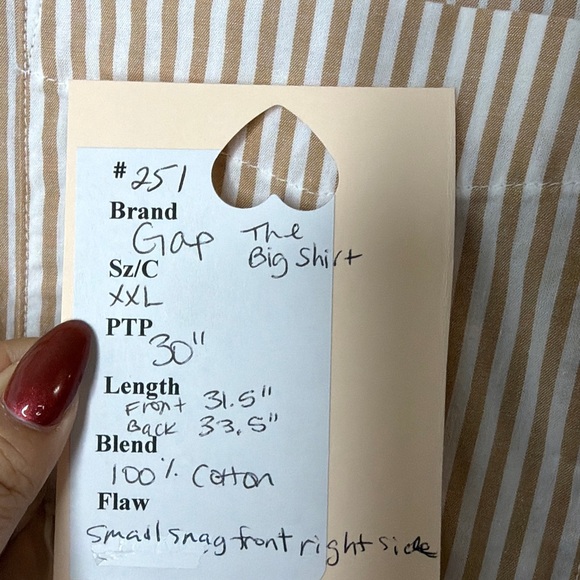 # 251
Brand
Gap The
Big Shirt
Sz/C
XXL
PTP
30"
Length
Front 31.5"
Back 33.5"
Blend
100% Cotton
Flaw
Small snag front right side